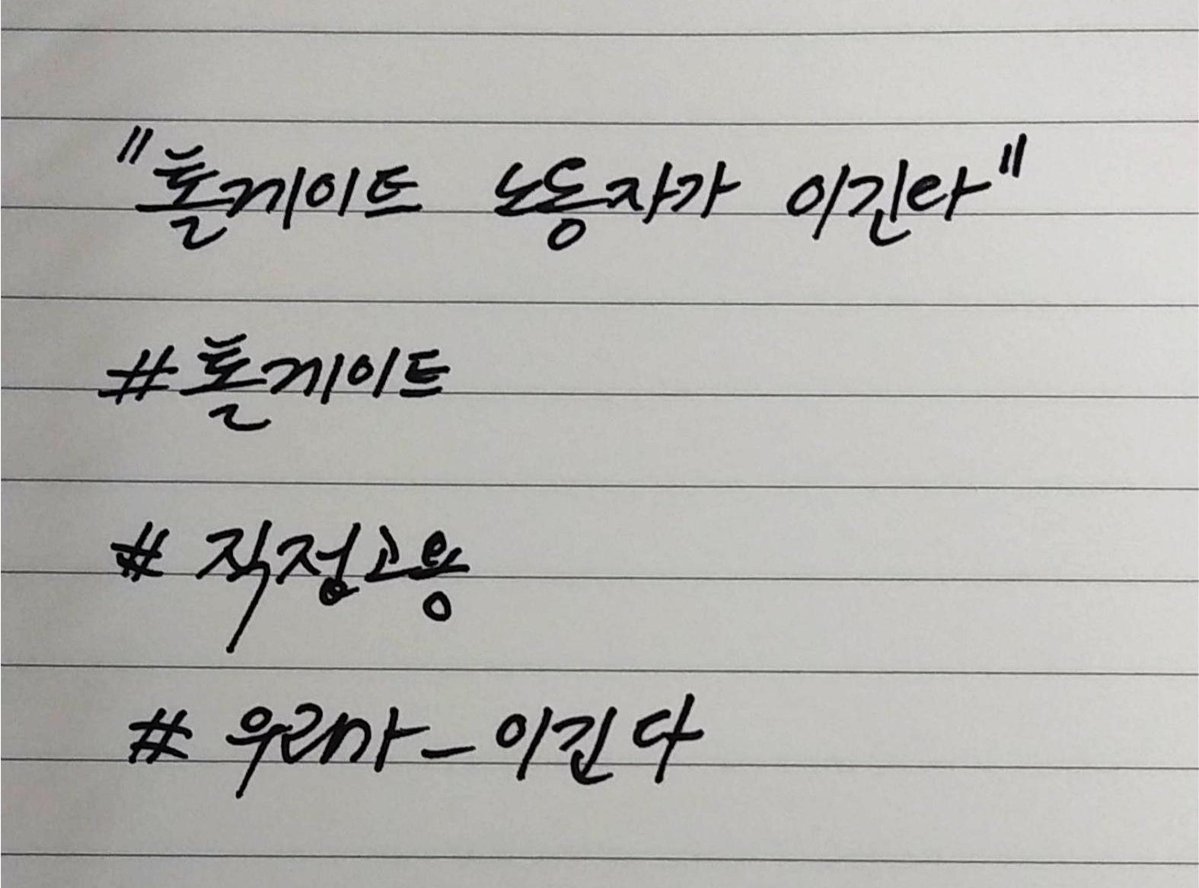 "톨게이트 노동자가 이긴다"
#톨게이트
# 직접고용
# 우리가_이긴다